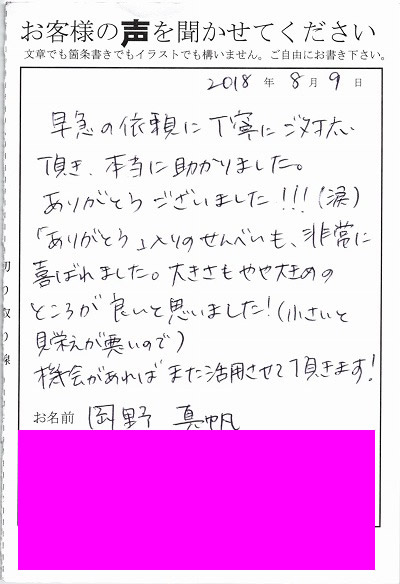 お客様の声を聞かせてください
文章でも箇条書きでもイラストでも構いません。ご自由にお書き下さい。
2018年 8月 9日
早急の依頼に丁寧にご対応
頂き、本当に助かりました。
ありがとうございました!!!(涙)
「ありがとう」入りのせんべいも、非常に
喜ばれました。大きさもやや大きめの
ところが良いと思いました!(小さいと
見栄えが悪いので)
機会があればまた活用させて頂きます!
お名前 岡野 真帆
切り取り線